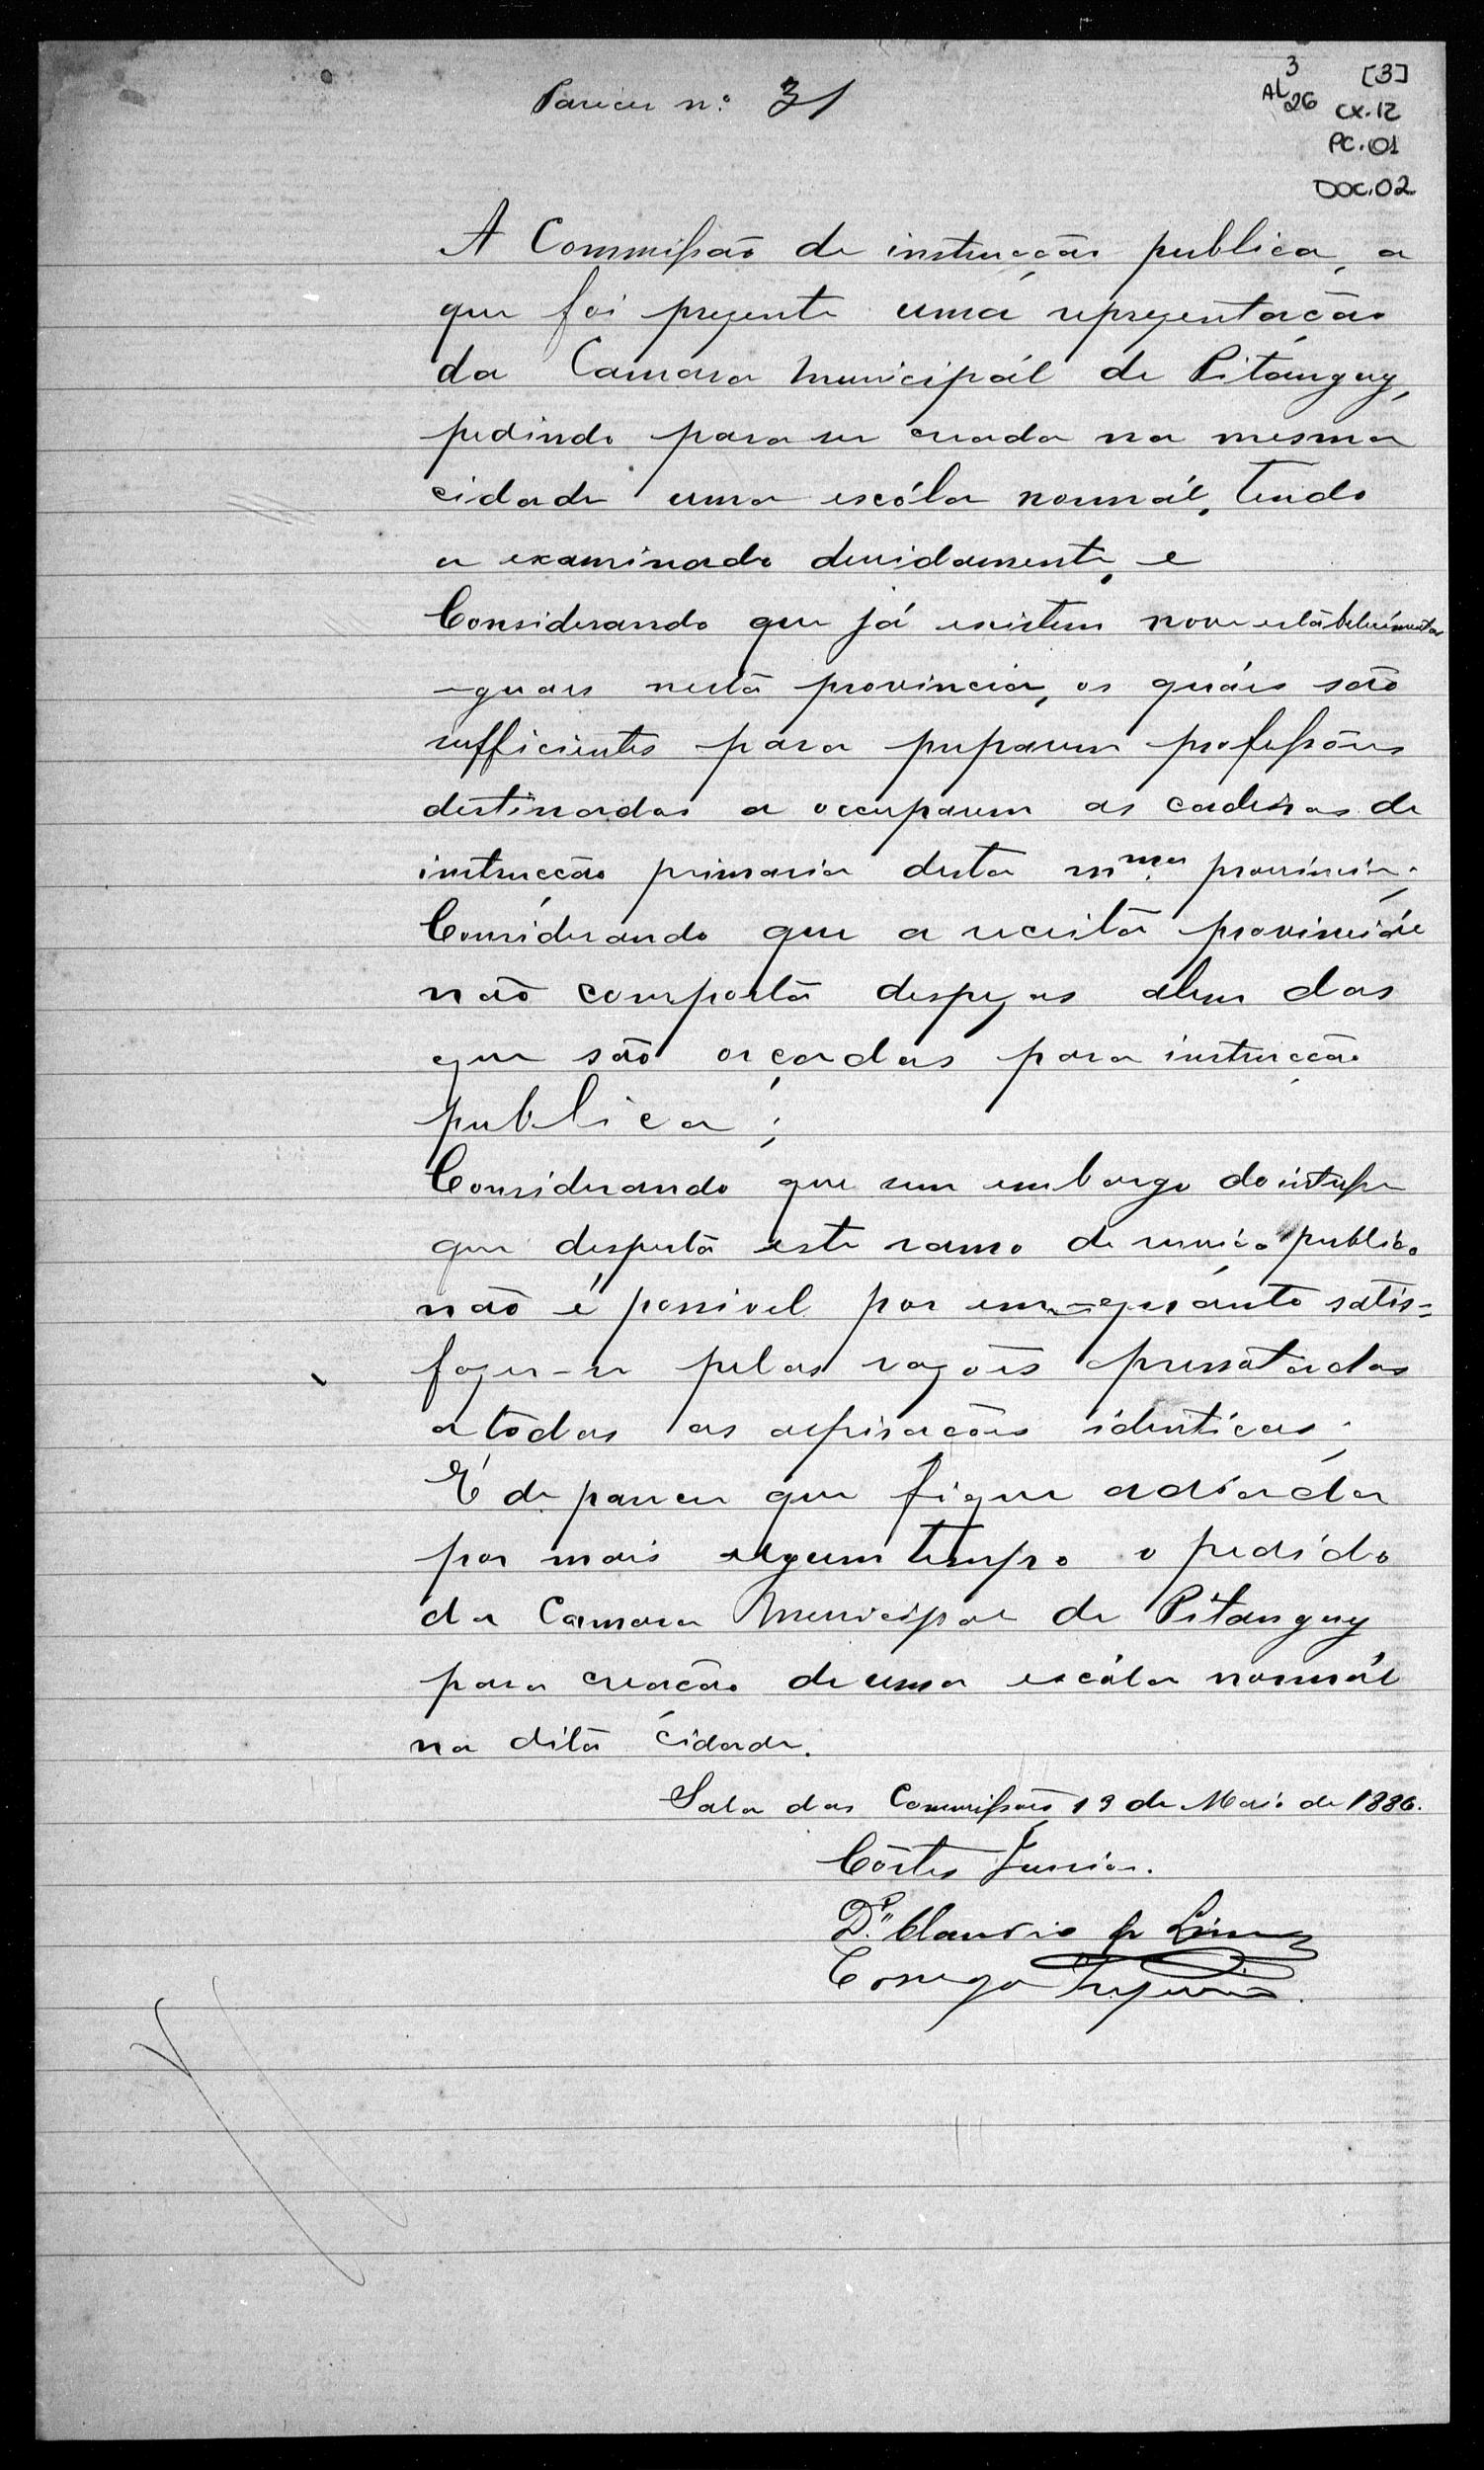 Parecer n.º 31
3
AL 26
[3]
CX.12
PC.01
DOC.02
A Commissão de instrucção publica, a
que foi prezente uma reprezentação
da Camara Municipál de Pitanguy,
pedindo para ser creada na mesma
cidade uma escóla normál, tendo
a examinado devidamente, e
Considerando que já existem nove estabelecimentos
iguaes nesta provincia, os quáes são
sufficientes para preparem professores
destinados a occuparem as cadeiras de
instrucção primaria desta m.ma provincia;
Considerando que a receita provinciál
não comporta despezas alem das
que são orçadas para instrucção
publica;
Considerando que sem embargo do interesse
que desperta este ramo de serviço publico
não é possivel por em-quanto satis=
fazer-se pelas razões apresentadas
a todas as aspirações identicas;
É de parecer que fique adiada
por mais algum tempo o pedido
da Camara Municipal de Pitanguy
para creação de uma escóla normál
na dita cidade.
Sala das Commissões 19 de Maio de 1886.
Côrtes Junior.
D.r Claudio de Lima
Conego